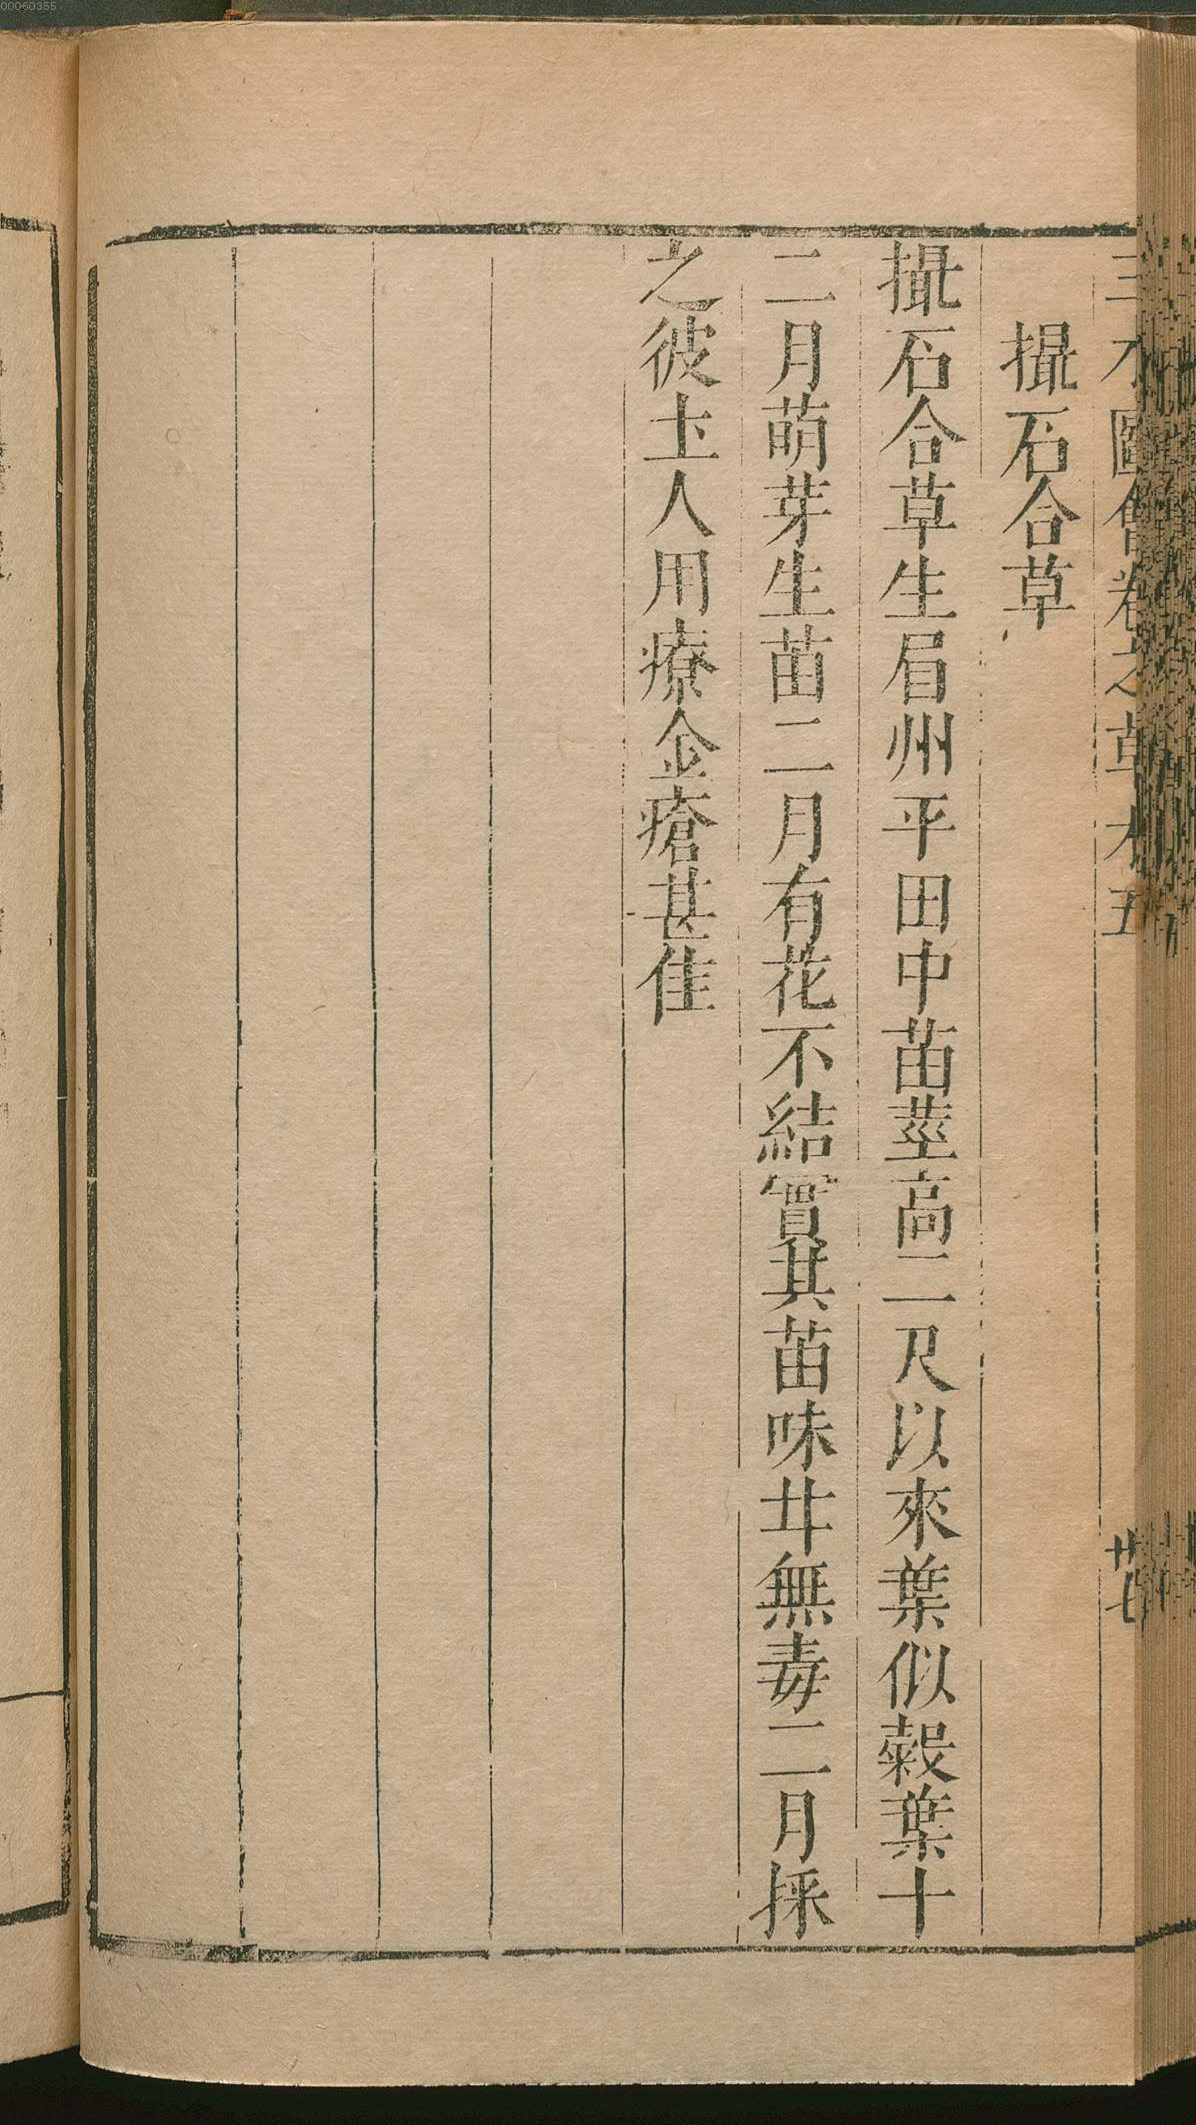 三才圖會卷之草木五 廿七
攝石合草
攝石合草生眉州平田中苗莖高二尺以來葉似榖葉十
二月萌芽生苗二月有花不結實其苗味甘無毒二月採
之彼土人用療金瘡甚佳
00060355